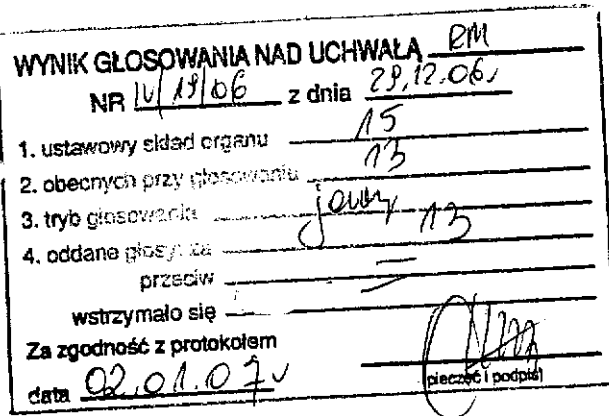 WYNIK GŁOSOWANIA NAD UCHWAŁĄ RM
NR IV/19/06 z dnia 29.12.06.
1. ustawowy skład organu 15
2. obecnych przy głosowaniu 13
3. tryb głosowania jawny
4. oddane głosy: za 13
przeciw –
wstrzymało się –
Za zgodność z protokołem
data 02.01.07
(pieczęć i podpis)